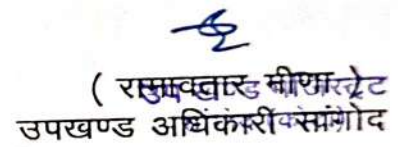 ( रामावतार मीणा )
उपखण्ड अधिकारी सांगोद